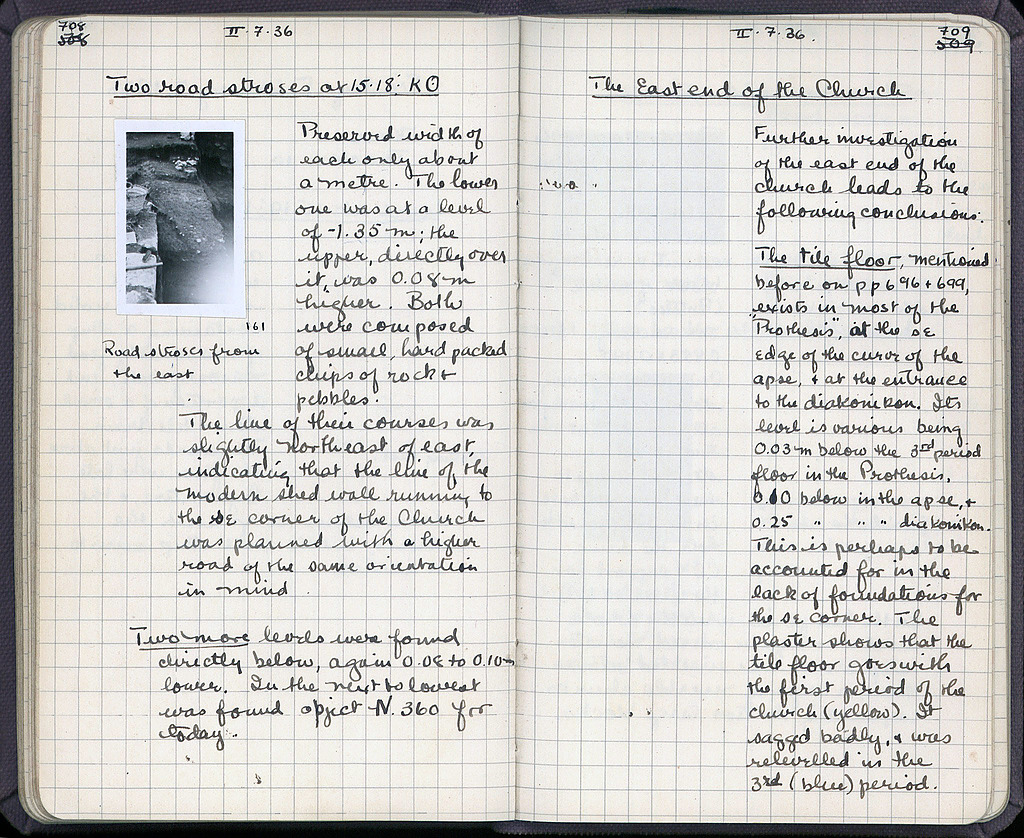 708
508
II·7·36
Two road stroses at 15·18: KO
Preserved width of
each only about
a metre. The lower
one was at a level
of -1.35 m; the
upper, directly over
it, was 0.08 m
higher. Both
were composed
of small, hard packed
chips of rock +
pebbles.
161
Road stroses from
the east
The line of their courses was
slightly northeast of east,
indicating that the line of the
modern shed wall running to
the SE corner of the Church
was planned with a higher
road of the same orientation
in mind.
Two more levels were found
directly below, again 0.08 to 0.10 m
lower. In the next to lowest
was found object N. 360 for
today.
II·7·36.
709
509
The East end of the Church
Further investigation
of the east end of the
church leads to the
following conclusions.
The tile floor, mentioned
before on pp 696 + 699,
exists in most of the
"Prothesis", at the SE
edge of the curve of the
apse, + at the entrance
to the diakonikon. Its
level is various being
0.03 m below the 3rd period
floor in the Prothesis,
0.10 below in the apse, +
0.25 " " " diakonikon.
This is perhaps to be
accounted for in the
lack of foundations for
the SE corner. The
plaster shows that the
tile floor goes with
the first period of the
church (yellow). It
sagged badly, + was
relevelled in the
3rd (blue) period.